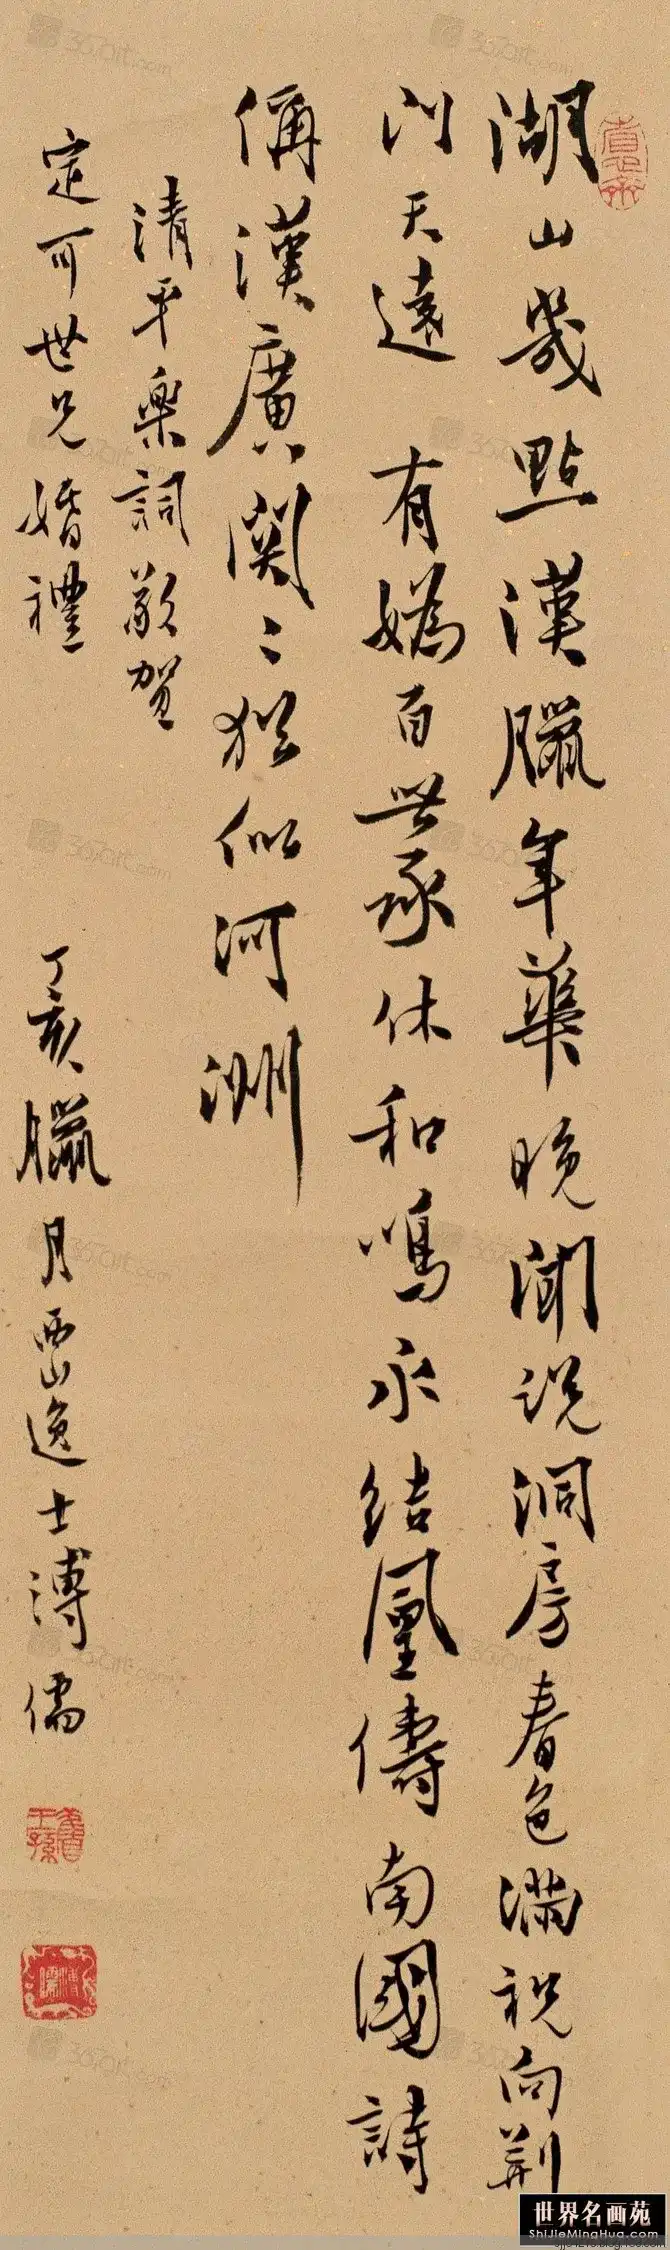 湖山幾點漢臘年華晚聞説洞房春色滿祝向荆
門天遠　有嬀百世承休和鳴永結凰儔南國詩
偁漢廣關〻猶似河洲
清平樂詞敬賀
定可世兄婚禮　丁亥臘月西山逸士溥儒
舊王孫
溥儒
367art.com
世界名画苑
ShiJieMingHua.com